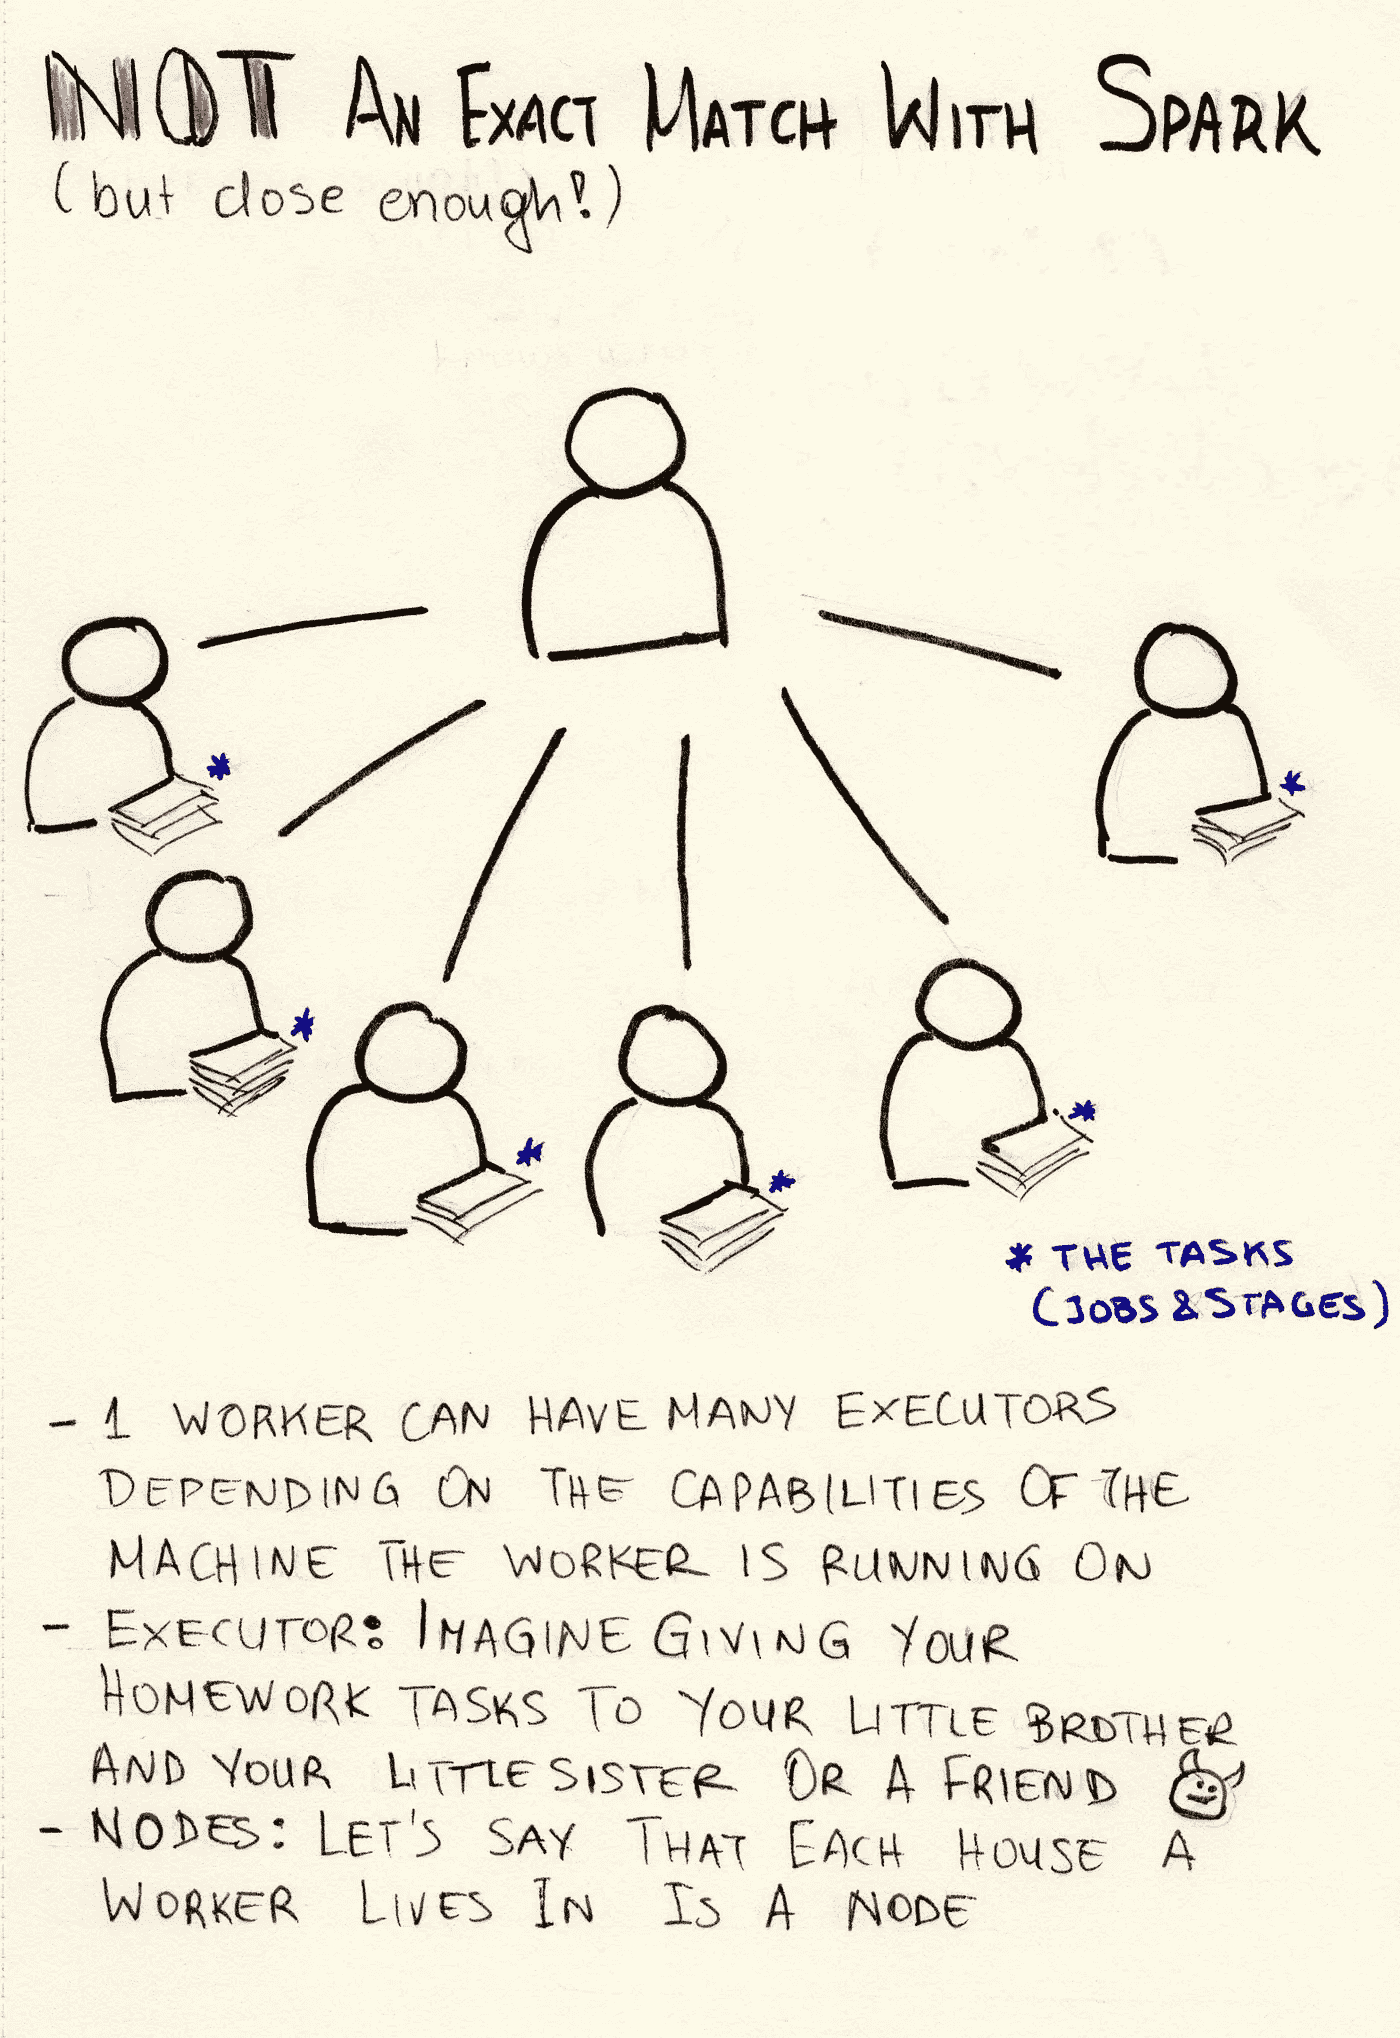 NOT AN EXACT MATCH WITH SPARK
(but close enough!)
* THE TASKS
(JOBS & STAGES)
- 1 WORKER CAN HAVE MANY EXECUTORS
DEPENDING ON THE CAPABILITIES OF THE
MACHINE THE WORKER IS RUNNING ON
- EXECUTOR: IMAGINE GIVING YOUR
HOMEWORK TASKS TO YOUR LITTLE BROTHER
AND YOUR LITTLE SISTER OR A FRIEND
- NODES: LET'S SAY THAT EACH HOUSE A
WORKER LIVES IN IS A NODE